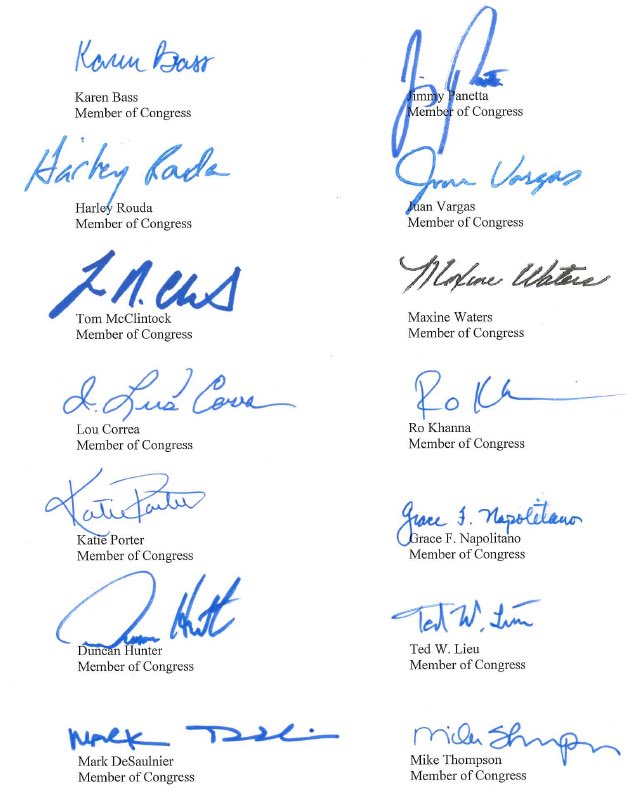 Karen Bass
Karen Bass
Member of Congress
Jimmy Panetta
Member of Congress
Harley Rouda
Harley Rouda
Member of Congress
Juan Vargas
Juan Vargas
Member of Congress
Tom McClintock
Member of Congress
Maxine Waters
Maxine Waters
Member of Congress
J. Luis Correa
Lou Correa
Member of Congress
Ro Kh
Ro Khanna
Member of Congress
Katie Porter
Katie Porter
Member of Congress
Grace F. Napolitano
Grace F. Napolitano
Member of Congress
Duncan Hunter
Member of Congress
Ted W. Lieu
Ted W. Lieu
Member of Congress
Mark
Mark DeSaulnier
Member of Congress
Mike Thompson
Mike Thompson
Member of Congress